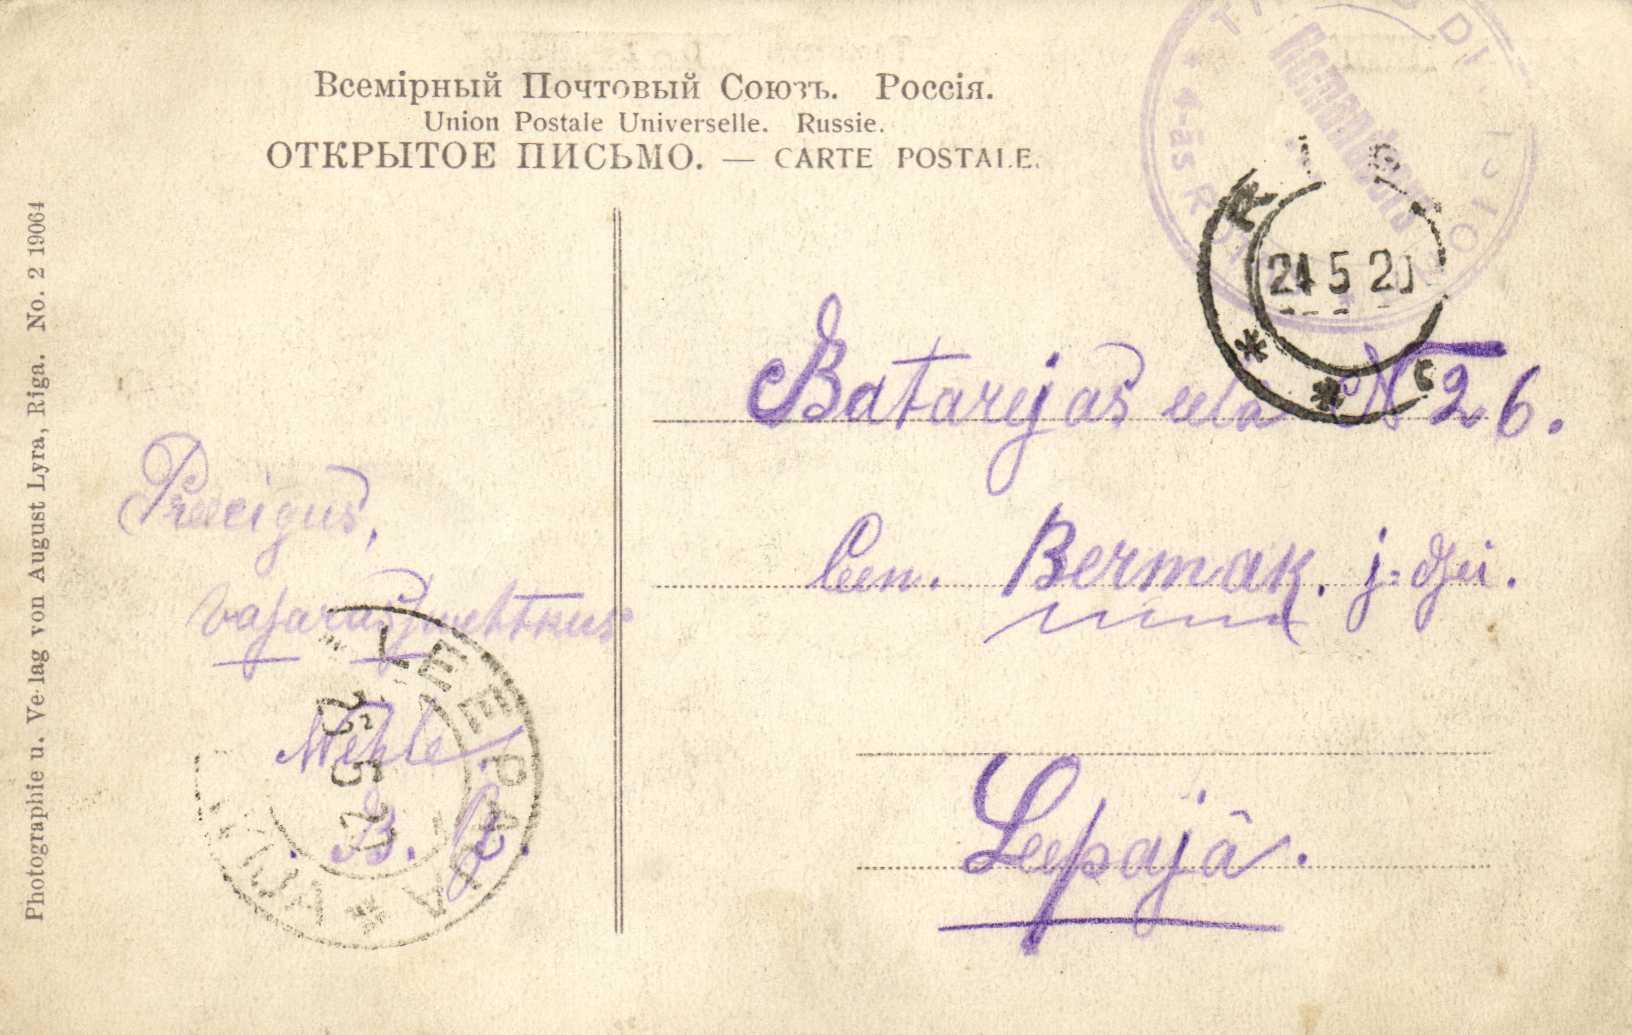 Всемірный Почтовый Союзъ. Россія.
Union Postale Universelle. Russie.
ОТКРЫТОЕ ПИСЬМО. — CARTE POSTALE.
Photographie u. Verlag von August Lyra, Riga. No. 2 19064
4-ās
24 5 20
Batarejas ela № 26.
Bermak. j. dzei.
Leepajâ.
Preecigus,
vasarasswehtkus
B.
LEEPAJA